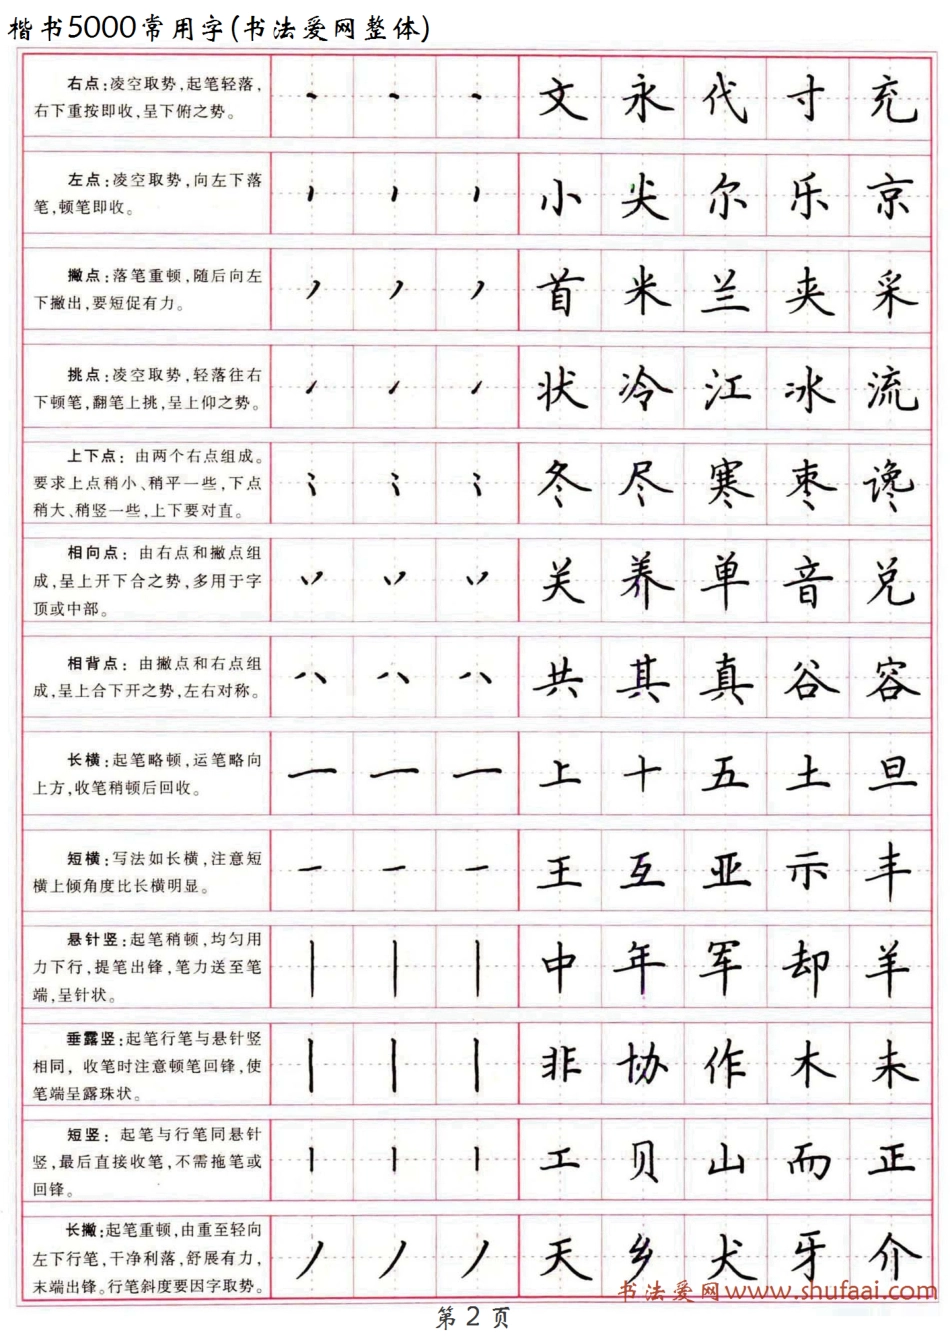 楷书5000常用字(书法爱网整体)
右点:凌空取势,起笔轻落,
右下重按即收,呈下俯之势。
文 永 代 寸 充
左点:凌空取势,向左下落
笔,顿笔即收。
小 尖 尔 乐 京
撇点:落笔重顿,随后向左
下撇出,要短促有力。
首 米 兰 夹 采
挑点:凌空取势,轻落往右
下顿笔,翻笔上挑,呈上仰之势。
状 冷 江 冰 流
上下点:由两个右点组成。
要求上点稍小、稍平一些,下点
稍大、稍竖一些,上下要对直。
冬 尽 寒 枣 谗
相向点:由右点和撇点组
成,呈上开下合之势,多用于字
顶或中部。
关 养 单 音 兑
相背点:由撇点和右点组
成,呈上合下开之势,左右对称。
共 其 真 谷 容
长横:起笔略顿,运笔略向
上方,收笔稍顿后回收。
上 十 五 土 旦
短横:写法如长横,注意短
横上倾角度比长横明显。
王 互 亚 示 丰
悬针竖:起笔稍顿,均匀用
力下行,提笔出锋,笔力送至笔
端,呈针状。
中 年 军 却 羊
垂露竖:起笔行笔与悬针竖
相同,收笔时注意顿笔回锋,使
笔端呈露珠状。
非 协 作 木 未
短竖:起笔与行笔同悬针
竖,最后直接收笔,不需拖笔或
回锋。
工 贝 山 而 正
长撇:起笔重顿,由重至轻向
左下行笔,干净利落,舒展有力,
末端出锋。行笔斜度要因字取势。
天 乡 犬 牙 介
书法爱网www.shufaai.com
第 2 页